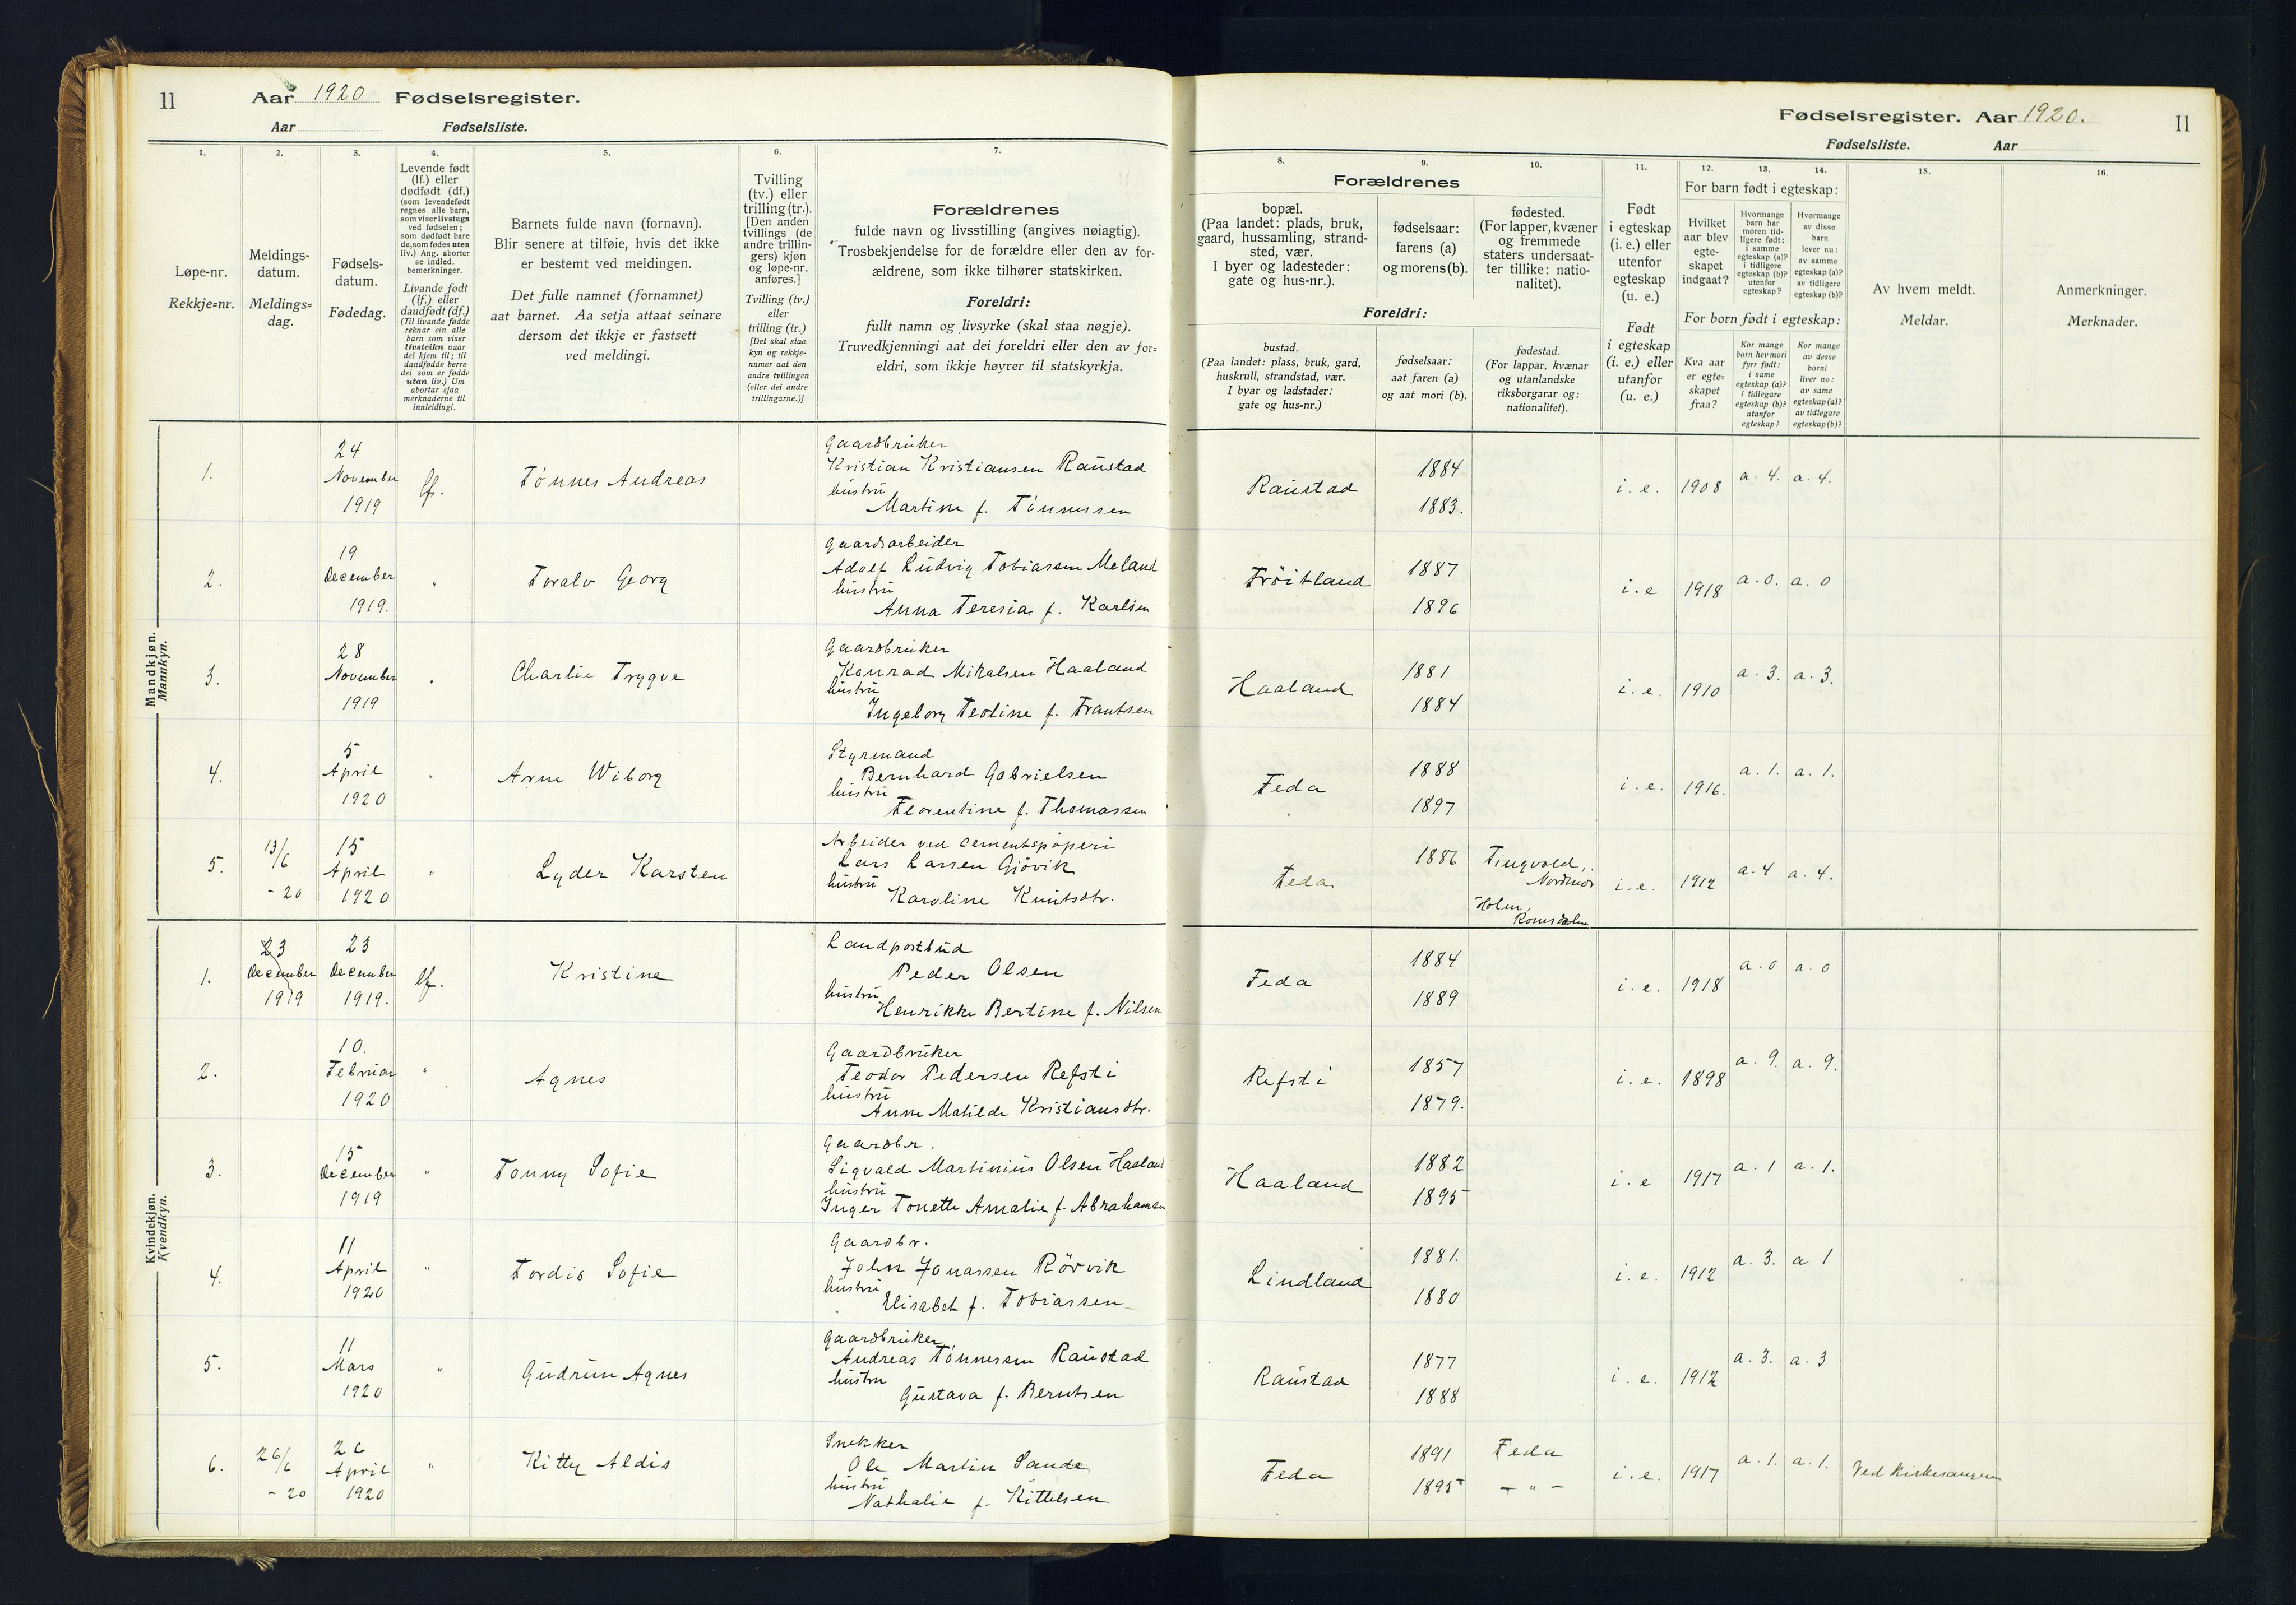 11
Aar 1920 Fødselsregister.
Aar Fødselsliste.
1.
2.
3.
4.
5.
6.
7.
Løpe-nr.
Rekkje=nr.
Meldings-
datum.
Meldings=
dag.
Fødsels-
datum.
Fødedag.
Levende født
(lf.) eller
dødfødt (df.)
(som levendefødt
regnes alle barn,
som viser livstegn
ved fødselen;
som dødfødt bare
de, som fødes uten
liv.) Ang. aborter
se indled.
bemerkninger.
Livande født
(lf.) eller
daudfødt (df.)
(Til livande fødde
reknar ein alle
barn som viser
livsteikn naar
dei kjem til; til
daudfødde berre
dei som er fødde
utan liv.) Um
abortar sjaa
merknaderne til
innleidingi.
Barnets fulde navn (fornavn).
Blir senere at tilføie, hvis det ikke
er bestemt ved meldingen.
Det fulle namnet (fornamnet)
aat barnet. Aa setja attaat seinare
dersom det ikkje er fastsett
ved meldingi.
Tvilling
(tv.) eller
trilling (tr.).
[Den anden
tvillings (de
andre trillin-
gers) kjøn
og løpe-nr.
anføres.]
Tvilling (tv.)
eller
trilling (tr.)
[Det skal staa
kyn og rekkje-
numer aat den
andre tvillingen
(eller dei andre
trillingarne.)]
Forældrenes
fulde navn og livsstilling (angives nøiagtig).
Trosbekjendelse for de forældre eller den av for-
ældrene, som ikke tilhører statskirken.
Foreldri:
fullt namn og livsyrke (skal staa nøgje).
Truvedkjenningi aat dei foreldri eller den av for=
eldri, som ikkje høyrer til statskyrkja.
Mandkjøn.
Mannkyn.
1.
24
November
1919
lf.
Tønnes Andreas
Gaardbruker
Kristian Kristiansen Raustad
hustru
Martine f. Tønnessen
2.
19
December
1919.
"
Toralv Georg
Gaardsarbeider
Adolf Ludvig Tobiassen Meland
hustru
Anna Teresia f. Karlsen
3.
28
November
1919
"
Charlie Trygve
Gaardbruker
Konrad Mikalsen Haaland
hustru
Ingeborg Teoline f. Frantsen
4.
5
April
1920
"
Arne Wiborg
Styrmand
Bernhard Gabrielsen
hustru
Florentine f. Thomassen
5.
13/6
- 20
15
April
1920
"
Lyder Karsten
Arbeider ved cementstøperi
Lars Larsen Gjøvik
hustru
Karoline Knutsdtr.
Kvindekjøn.
Kvendkyn.
1.
23
December
1919
23
December
1919.
lf.
Kristine
Landpostbud
Peder Olsen
hustru
Henrikke Bertine f. Nilsen
2.
10.
Februar
1920
"
Agnes
Gaardbruker
Teodor Pedersen Refsti
hustru
Anne Matilde Kristiansdtr.
3.
15
December
1919
"
Tonny Sofie
Gaardbr.
Sigvald Martinius Olsen Haaland
hustru
Inger Tonette Amalie f. Abrahamsen
4.
11
April
1920
"
Tordis Sofie
Gaardbr.
John Jonassen Rörvik
hustru
Elisabet f. Tobiassen
5.
11
Mars
1920
"
Gudrun Agnes
Gaardbruker
Andreas Tønnessen Raustad
hustru
Gustava f. Berntsen
6.
26/6
- 20
26
April
1920
"
Kitty Aldis
Snekker
Ole Martin Sande
hustru
Nathalie f. Kittelsen
Fødselsregister. Aar 1920.
11
Fødselsliste. Aar
8.
9.
10.
11.
12.
13.
14.
15.
16.
Forældrenes
bopæl.
(Paa landet: plads, bruk,
gaard, hussamling, strand-
sted, vær.
I byer og ladesteder:
gate og hus-nr.).
fødselsaar:
farens (a)
og morens (b).
fødested.
(For lapper, kvæner
og fremmede
staters undersaat-
ter tillike: natio-
nalitet).
Foreldri:
bustad.
(Paa landet: plass, bruk, gard,
huskrull, strandstad, vær.
I byar og ladstader:
gate og hus=nr.)
fødselsaar:
aat faren (a)
og aat mori (b).
fødestad.
(For lappar, kvænar
og utanlandske
riksborgarar og:
nationalitet).
Født
i egteskap
(i. e.) eller
utenfor
egteskap
(u. e.)
Født
i egteskap
(i. e.) eller
utanfor
(u. e.)
For barn født i egteskap:
Hvilket
aar blev
egte-
skapet
indgaat?
Hvormange
barn har
moren tid-
ligere født:
i samme
egteskap (a)?
i tidligere
egteskap (b)?
utenfor
egteskap?
Hvormange
av disse
barn
lever nu:
av samme
egteskap (a)?
av tidligere
egteskap (b)?
For born født i egteskap:
Kva aar
er egte=
skapet
fraa?
Kor mange
born hev mori
fyrr født:
i same
egteskap (a)?
i tidlegare
egteskap (b)?
utanfor
egteskap?
Kor mange
av desse
borni
liver no:
av same
egteskap (a)?
av tidlegare
egteskap (b)?
Av hvem meldt.
Meldar.
Anmerkninger.
Merknader.
Raustad
1884
1883.
i. e.
1908
a. 4.
a. 4.
Frøitland
1887
1896
i. e
1918
a. 0.
a. 0
Haaland
1881
1884
i. e.
1910
a. 3.
a. 3.
Feda
1888
1897
i. e.
1916.
a. 1.
a. 1.
Feda
1886
Tingvold,
Nordmør
Holm,
Romsdalen
i. e.
1912
a. 4
a. 4.
Feda
1884
1889
i. e.
1918
a. 0
a. 0
Refsti
1857
1879.
i. e.
1898
a. 9.
a. 9.
Haaland
1882
1895
i. e
1917
a. 1
a. 1.
Lindland
1881.
1880
i. e.
1912
a. 3.
a 1
Raustad
1877
1888
i. e.
1912
a. 3.
a. 3
Feda
1891
1895
Feda
- " -
i. e.
1917
a. 1.
a. 1.
Ved kirkesangeren